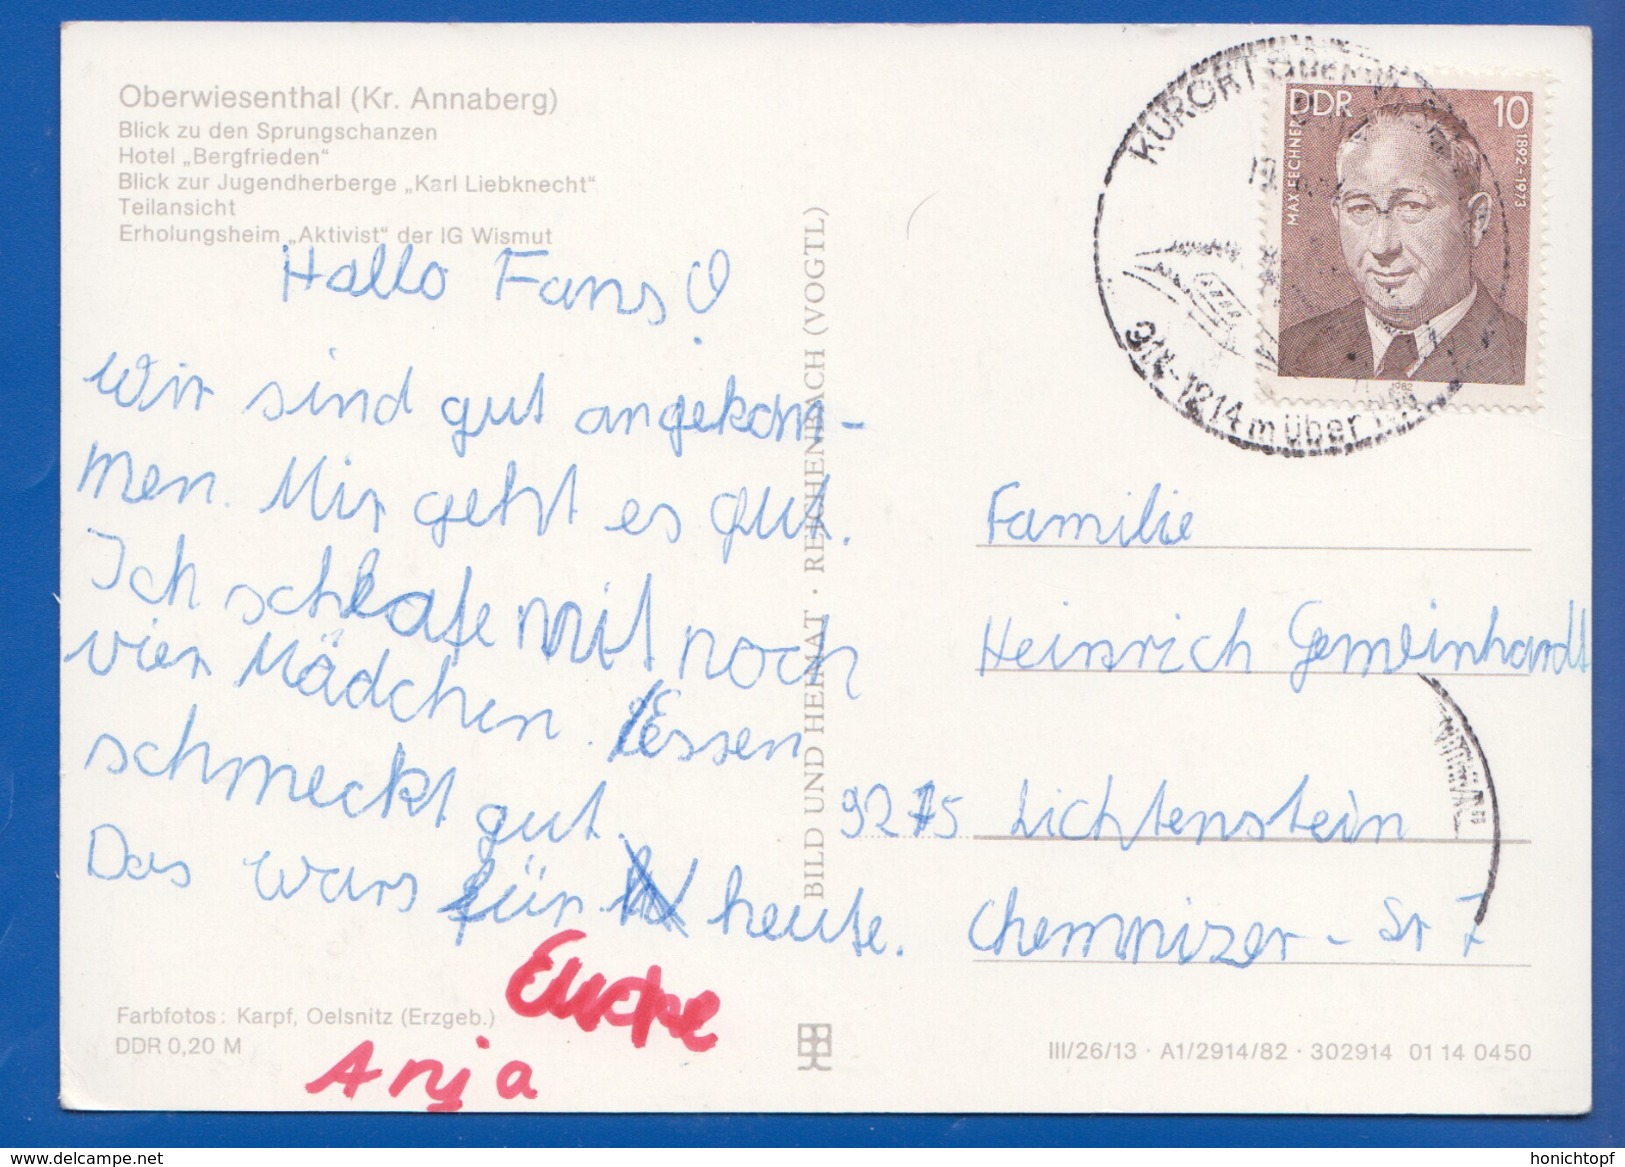 Oberwiesenthal (Kr. Annaberg)
Blick zu den Sprungschanzen
Hotel „Bergfrieden“
Blick zur Jugendherberge „Karl Liebknecht“
Teilansicht
Erholungsheim „Aktivist“ der IG Wismut
Hallo Fans!
Wir sind gut angekom-
men. Mir geht es gut.
Ich schlafe mit noch
vier Mädchen. Essen
schmeckt gut.
Das wars für heute.
Eure
Anja
Farbfotos: Karpf, Oelsnitz (Erzgeb.)
DDR 0,20 M
BILD UND HEIMAT · REICHENBACH (VOGTL)
KURORT
914-1214 m über
DDR 10
MAX FECHNER
1892-1973
1982
Familie
Heinrich Gemeinhardt
9275 Lichtenstein
Chemnizer-Str 7
III/26/13 · A1/2914/82 · 302914 01 14 0450
www.delcampe.net
honichtopf